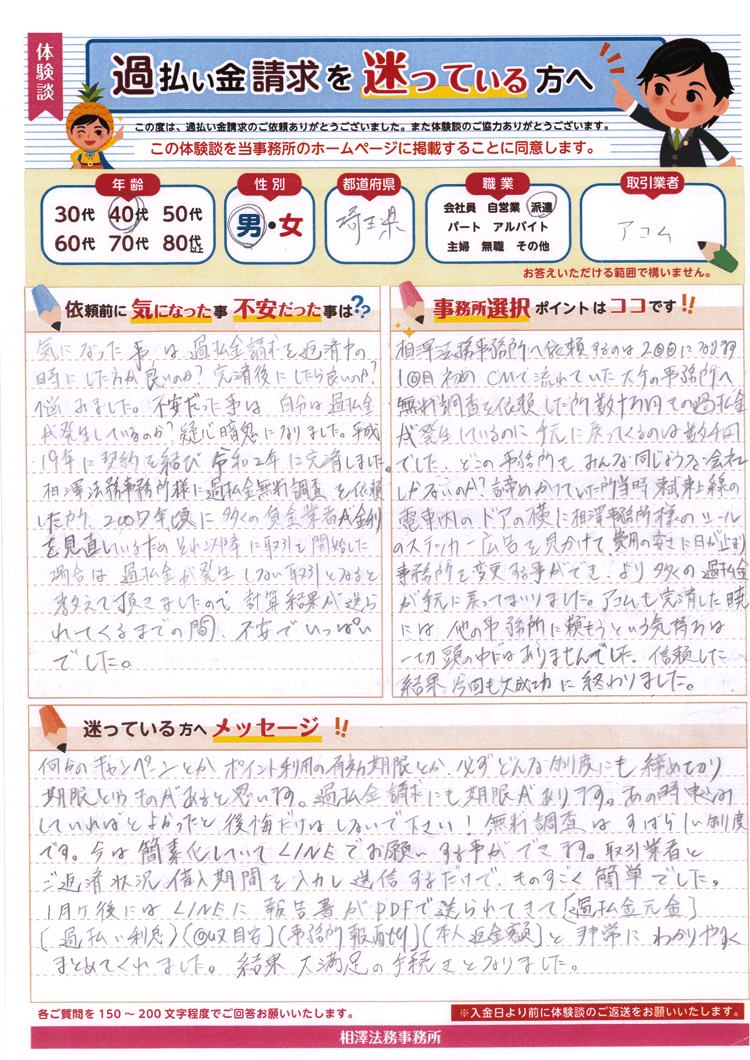 体験談
過払い金請求を迷っている方へ
この度は、過払い金請求のご依頼ありがとうございました。また体験談のご協力ありがとうございます。
この体験談を当事務所のホームページに掲載することに同意します。
年齢
30代 40代 50代
60代 70代 80代以上
性別
男・女
都道府県
埼玉県
職業
会社員 自営業 派遣
パート アルバイト
主婦 無職 その他
取引業者
アコム
お答えいただける範囲で構いません。
依頼前に気になった事 不安だった事は??
気になった事は過払金請求を返済中の
時にした方が良いのか?完済後にしたら良いのか?
悩みました。不安だった事は 自分は過払金
が発生しているのか?疑心暗鬼になりました。平成
19年に契約を結び 令和2年に完済しました。
相澤法務事務所様に過払金無料調査を依頼
した所、2007年頃に多くの貸金業者が金利
を見直しているため それ以降に取引を開始した
場合は 過払金が発生しない取引となると
教えて頂きましたので 計算結果が送ら
れてくるまでの間、不安でいっぱい
でした。
事務所選択 ポイントは ココです!!
相澤法務事務所へ依頼するのは2回目になります
1回目初め CMで流れていた大手の事務所へ
無料調査を依頼した所数十万円もの過払金
が発生しているのに手元に戻ってくるのは数千円
でした。どこの事務所もみんな同じような会社
しかないのか?諦めかけていた所当時 東武東上線の
電車内のドアの横に相澤事務所様のシール
のステッカー広告を見かけて、費用の安さに目が止まり
事務所を変更する事ができ より多くの過払金
が手元に戻ってまいりました。アコムも完済した暁
には、他の事務所に頼もうという気持ちは
一切頭の中にはありませんでした。信頼した
結果 今回も大成功に終わりました。
迷っている方へ メッセージ !!
何らかのキャンペーンとか ポイント利用の有効期限とか、必ずどんな制度にも締めきり
期限というものがあると思います。過払金請求にも期限があります。あの時申込み
していればとよかったと後悔だけはしないで下さい!無料調査はすばらしい制度
です。今は簡素化していてLINEでお願いする事ができます。取引業者と
ご返済状況 借入期間を入力し送信するだけで、ものすごく簡単でした。
1月ヶ後にはLINEに報告書がPDFで送られてきて〔過払金元金〕
〔過払い利息〕〔回収目安〕〔事務所報酬〕〔本人返金額〕と非常にわかりやすく
まとめてくれました。結果 大満足の手続きとなりました。
各ご質問を150～200文字程度でご回答お願いいたします。
※入金日より前に体験談のご返送をお願いいたします。
相澤法務事務所